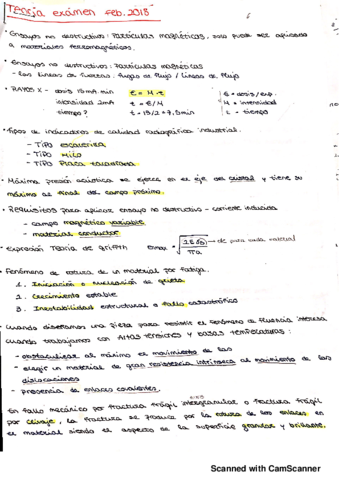 Teoría examen Feb. 2018
6
• Ensayos no destructivo: Partículas magnéticas, solo puede ser aplicado
a materiales ferromagnéticos.
• Ensayos no destructivo: Partículas magnéticas
- las líneas de fuerzas: fugas de flujo / líneas de flujo
• RAYOS X - dosis 15 mA. min
intensidad 2mA
tiempo?
E = M·t
t = E/M
t = 15/2 = 7,5 min
E = dosis/exp.
M = intensidad
t = tiempo
• Tipos de indicadores de calidad radiográfica industrial.
- TIPO ESCALERILLA
- TIPO HILO
- TIPO Placa taladrada
• Máxima presión acústica se ejerce en el eje del cristal y tiene su
máximo al final del campo próximo.
• Requisitos para aplicar ensayo no destructivo - corriente inducida
- campo magnético variable
- material conductor
• Expresión Teoría de Griffith
σmax = √ 2Eγs / πa
→ de para cada material
• Fenómeno de rotura de un material por fatiga.
1. Iniciación o nucleación de grieta
2. Crecimiento estable
3. Inestabilidad estructural o fallo catastrófico
• Cuando diseñamos una pieza para resistir el fenómeno de fluencia interesa
cuando trabajamos con ALTAS TENSIONES Y BAJAS TEMPERATURAS:
- obstaculizar al máximo el movimiento de las
- elegir un material de gran resistencia intrínseca al movimiento de las
dislocaciones
- presencia de enlaces covalentes.
En fallo mecánico por fractura frágil intergranular o fractura frágil
por clivaje, la fractura se produce por la rotura de los enlaces en
el material siendo el aspecto de la superficie granular y brillante.
Scanned with CamScanner